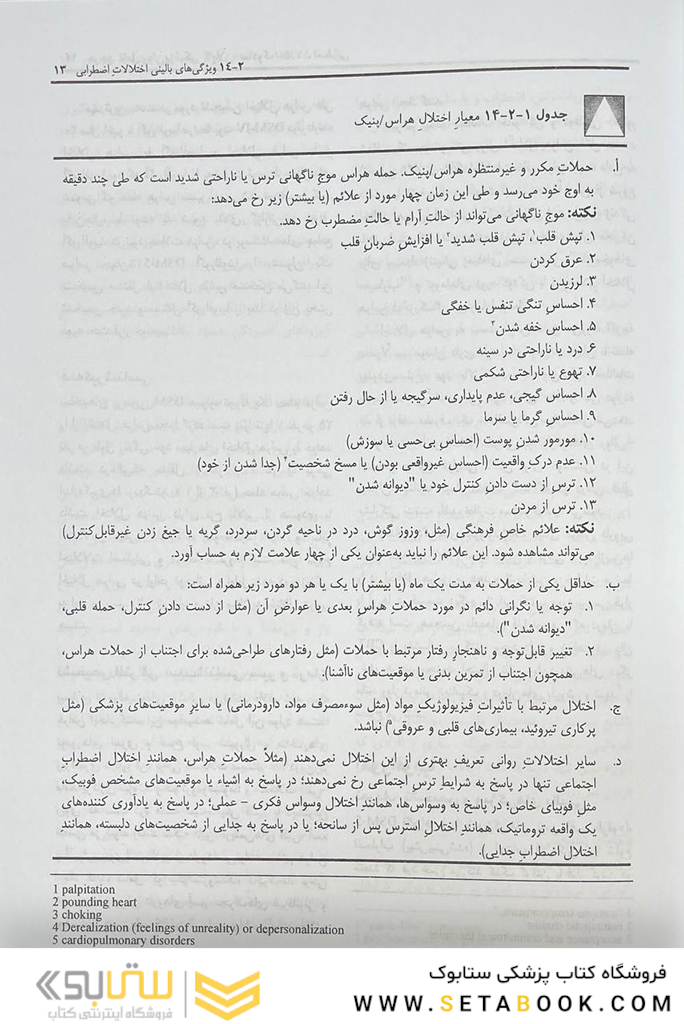 ۱۴-۲ ویژگی‌های بالینی اختلالاتِ اضطرابی ۱۳
جدول ۱-۲-۱۴ معیارِ اختلالِ هراس/پنیک
أ. حملاتِ مکرر و غیرمنتظره هراس/پنیک. حمله هراس موج ناگهانی ترس یا ناراحتی شدید است که طی چند دقیقه
به اوج خود می‌رسد و طی این زمان چهار مورد از علائم (یا بیشتر) زیر رخ می‌دهد:
نکته: موج ناگهانی می‌تواند از حالتِ آرام یا حالتِ مضطرب رخ دهد.
۱. تپش قلب۱، تپش قلب شدید۲ یا افزایشِ ضربانِ قلب
۲. عرق کردن
۳. لرزیدن
۴. احساسِ تنگیِ تنفس یا خفگی
۵. احساسِ خفه شدن۳
۶. درد یا ناراحتی در سینه
۷. تهوع یا ناراحتی شکمی
۸. احساسِ گیجی، عدم پایداری، سرگیجه یا از حال رفتن
۹. احساسِ گرما یا سرما
۱۰. مورمور شدنِ پوست (احساسِ بی‌حسی یا سوزش)
۱۱. عدم درکِ واقعیت (احساسِ غیرواقعی بودن) یا مسخ شخصیت۴ (جدا شدن از خود)
۱۲. ترس از دست دادنِ کنترل خود یا "دیوانه شدن"
۱۳. ترس از مردن
نکته: علائم خاصِ فرهنگی (مثل، وزوز گوش، درد در ناحیه گردن، سردرد، گریه یا جیغ زدن غیرقابل‌کنترل)
می‌تواند مشاهده شود. این علائم را نباید به‌عنوان یکی از چهار علامت لازم به حساب آورد.
ب. حداقل یکی از حملات به مدت یک ماه (یا بیشتر) با یک یا هر دو مورد زیر همراه است:
۱. توجه یا نگرانی دائم در مورد حملاتِ هراسِ بعدی یا عوارضِ آن (مثل از دست دادنِ کنترل، حمله قلبی،
"دیوانه شدن").
۲. تغییر قابل‌توجه و ناهنجارِ رفتار مرتبط با حملات (مثل رفتارهای طراحی‌شده برای اجتناب از حملات هراس،
همچون اجتناب از تمرین بدنی یا موقعیت‌های ناآشنا).
ج. اختلال مرتبط با تأثیراتِ فیزیولوژیکِ مواد (مثل سوءمصرف مواد، دارودرمانی) یا سایرِ موقعیت‌های پزشکی (مثل
پرکاری تیروئید، بیماری‌های قلبی و عروقی۵) نباشد.
د. سایر اختلالاتِ روانی تعریفِ بهتری از این اختلال نمی‌دهند (مثلاً حملاتِ هراس، همانندِ اختلال اضطرابِ
اجتماعی تنها در پاسخ به شرایطِ ترسِ اجتماعی رخ نمی‌دهند؛ در پاسخ به اشیاء یا موقعیت‌های مشخص فوبیک،
مثل فوبیای خاص؛ در پاسخ به وسواس‌ها، همانندِ اختلال وسواس فکری - عملی؛ در پاسخ به یادآوری کننده‌های
یک واقعه تروماتیک، همانند اختلالِ استرسِ پس از سانحه؛ یا در پاسخ به جدایی از شخصیت‌های دلبسته، همانندِ
اختلال اضطرابِ جدایی).
1 palpitation
2 pounding heart
3 choking
4 Derealization (feelings of unreality) or depersonalization
5 cardiopulmonary disorders
فروشگاه کتاب پزشکی ستابوک
WWW.SETABOOK.COM
ستابوک
فروشگاه اینترنتی کتاب